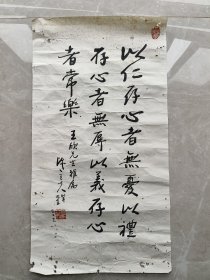 以仁存心者無憂以禮
存心者無辱以義存心
者常樂
王欣先生雅屬